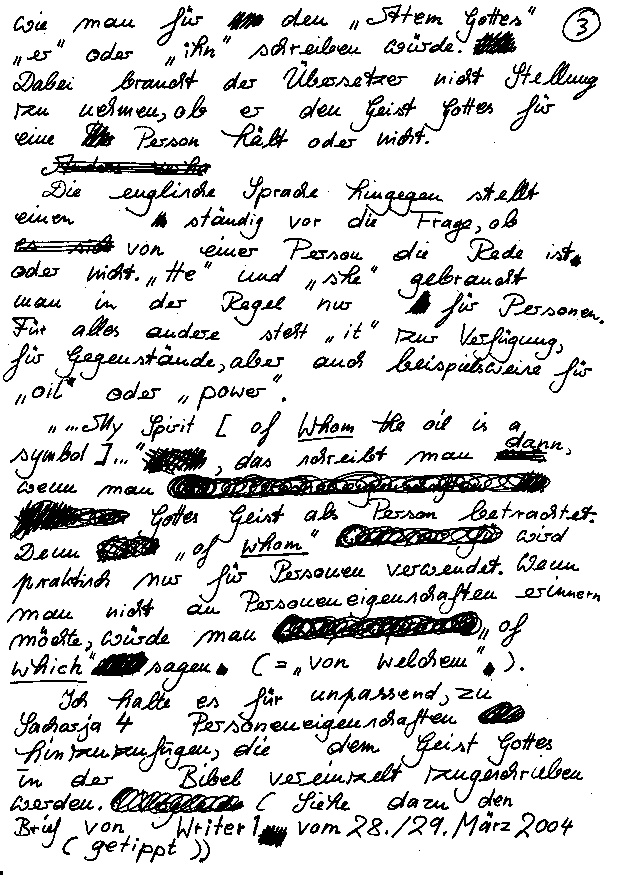 wie man für den „Atem Gottes“ ③
„er“ oder „ihn“ schreiben würde.
Dabei braucht der Übersetzer nicht Stellung
zu nehmen, ob er den Geist Gottes für
eine Person hält oder nicht.
Die englische Sprache hingegen stellt
einen ständig vor die Frage, ob
von einer Person die Rede ist
oder nicht. „He“ und „she“ gebraucht
man in der Regel nur für Personen.
Für alles andere steht „it“ zur Verfügung,
für Gegenstände, aber auch beispielsweise für
„oil“ oder „power“.
„...My Spirit [ of Whom the oil is a
symbol ]...“, das schreibt man dann,
wenn man
Gottes Geist als Person betrachtet.
Denn „of Whom“ wird
praktisch nur für Personen verwendet. Wenn
man nicht an Personeneigenschaften erinnern
möchte, würde man „of
which“ sagen. (= „von welchem“.).
Ich halte es für unpassend, zu
Sacharja 4 Personeneigenschaften
hinzuzufügen, die dem Geist Gottes
in der Bibel vereinzelt zugeschrieben
werden. (Siehe dazu den
Brief von Writer1 vom 28./29. März 2004
(getippt))